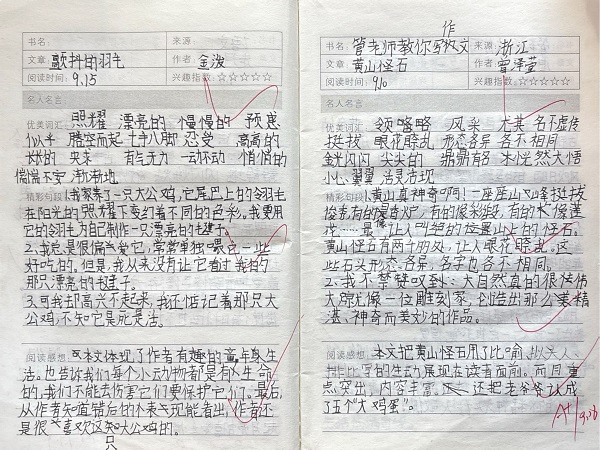 书名： 来源：
文章：颤抖的羽毛 作者：金波
阅读时间：9.15 兴趣指数：☆☆☆☆☆
名人名言：
优美词汇： 照耀 漂亮的 慢慢的 预感
似乎 腾空而起 七手八脚 忍受 高高的
长长的 夹来 有气无力 一动不动 悄悄的
惴惴不安 渐渐地
精彩句段：1.我家养了一只大公鸡，它尾巴上的翎羽毛
在阳光的照耀下变幻着不同的色彩。我要用
它的翎羽为自己制作一只漂亮的毽子。
2.我总是很偏爱它，常常单独喂它一些
好吃的。但是，我从来没有让它看过我的
那只漂亮的毽子。
3.可我却高兴不起来，我还惦记着那只大
公鸡，不知它是死是活。
阅读感想： 本文体现了作者有趣的童年生
活。也告诉我们每个小动物都是有生命
的，我们不能去伤害它们要保护它们。最后，
从作者知道错后的表现能看出，作者还
是很喜欢这只大公鸡的。
书名：管老师教你写作文 来源：浙江
文章：黄山怪石 作者：
阅读时间：9.10 兴趣指数：☆☆☆☆☆
名人名言：
优美词汇： 领略 风采 尤其 名不虚传
挺拔 眼花瞭乱 形态各异 各不相同
金光闪闪 尖尖的 鼎鼎有名 恍然大悟
小心翼翼 活灵活现
精彩句段：1.黄山真神奇啊！一座座山峰挺拔
俊秀，有的像香炉，有的像彩段，有的像莲
花……最像让人叫绝的应是山上的怪石。
黄山怪石有两个朋友，让人眼花瞭乱。这
些石头形态各异，名字也各不相同。
2.我不禁赞叹到：大自然真的很伟
大啊，犹像一位雕刻家，创造出那么精
湛、神奇而美妙的作品。
阅读感想： 本文把黄山怪石用了比喻、拟人、
排比写的生动展现在读者面前。而且重
点突出，内容丰富。还把老爷爷认成
了五个“大鸡蛋”。
A+